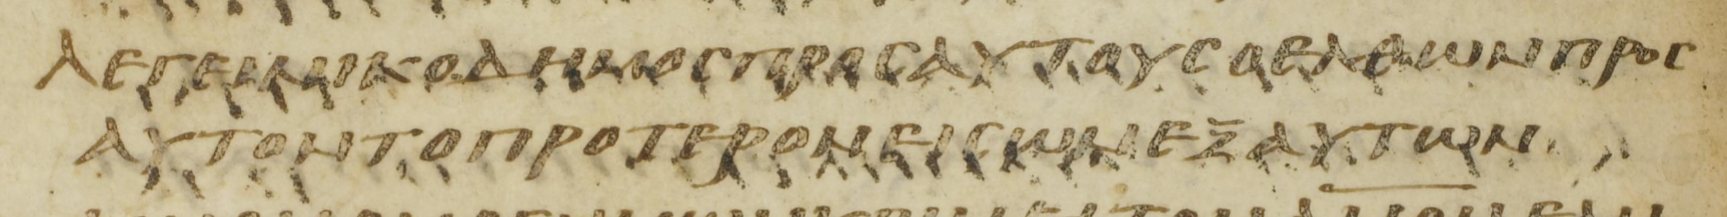 ΛΕΓΕΙΝΙΚΟΔΗΜΟCΠΡΟCΑΥΤΟΥCΟΕΛΘΩΝΠΡΟC
ΑΥΤΟΝΤΟΠΡΟΤΕΡΟΝΕΙCΩΝΕΞΑΥΤΩΝ